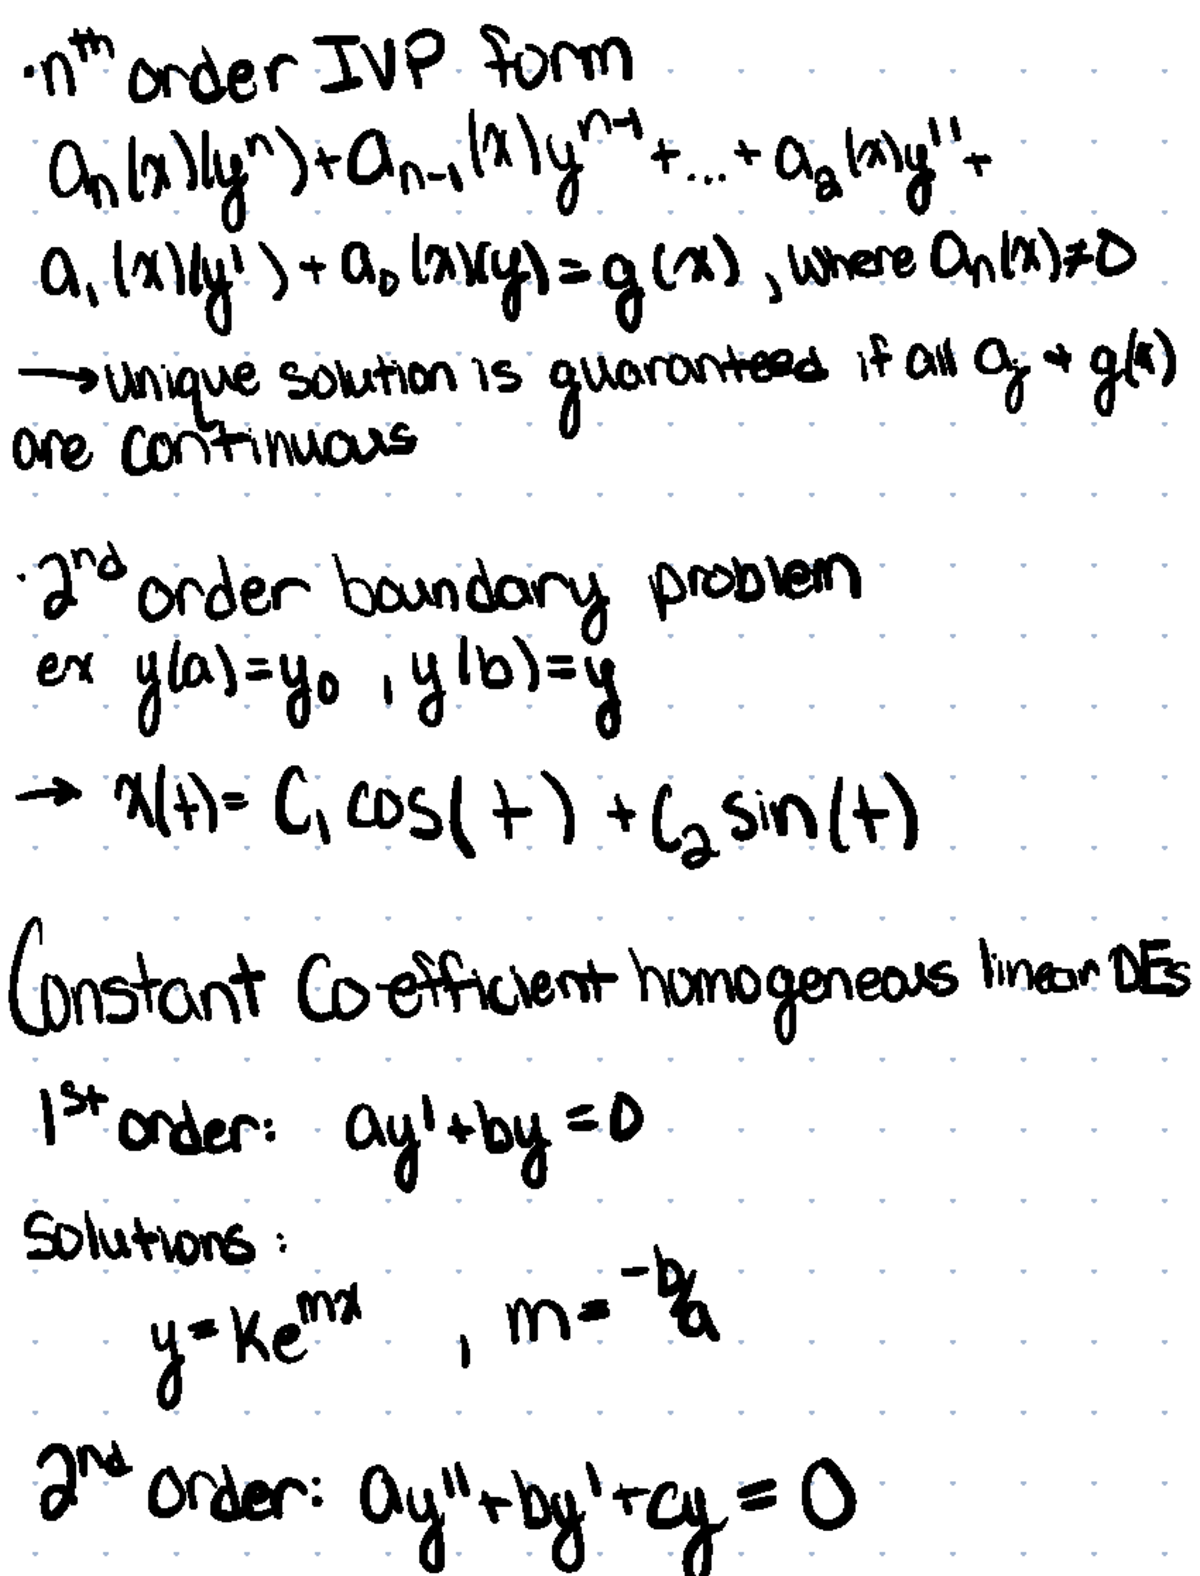 ·nᵗʰ order IVP form
aₙ(x)(yⁿ)+aₙ₋₁(x)yⁿ⁻¹+...+a₂(x)y''+
a₁(x)(y')+a₀(x)(y)=g(x), where aₙ(x)≠0
→unique solution is guaranteed if all aⱼ + g(x)
are continuous
·2ⁿᵈ order boundary problem
ex y(a)=y₀ , y(b)=y
→ x(t)= C₁ cos(t) + C₂ sin(t)
Constant Co-efficient homogeneous linear DEs
1ˢᵗ order: ay'+by=0
Solutions:
y=keᵐˣ , m=-b/a
2ⁿᵈ order: ay''+by'+cy=0